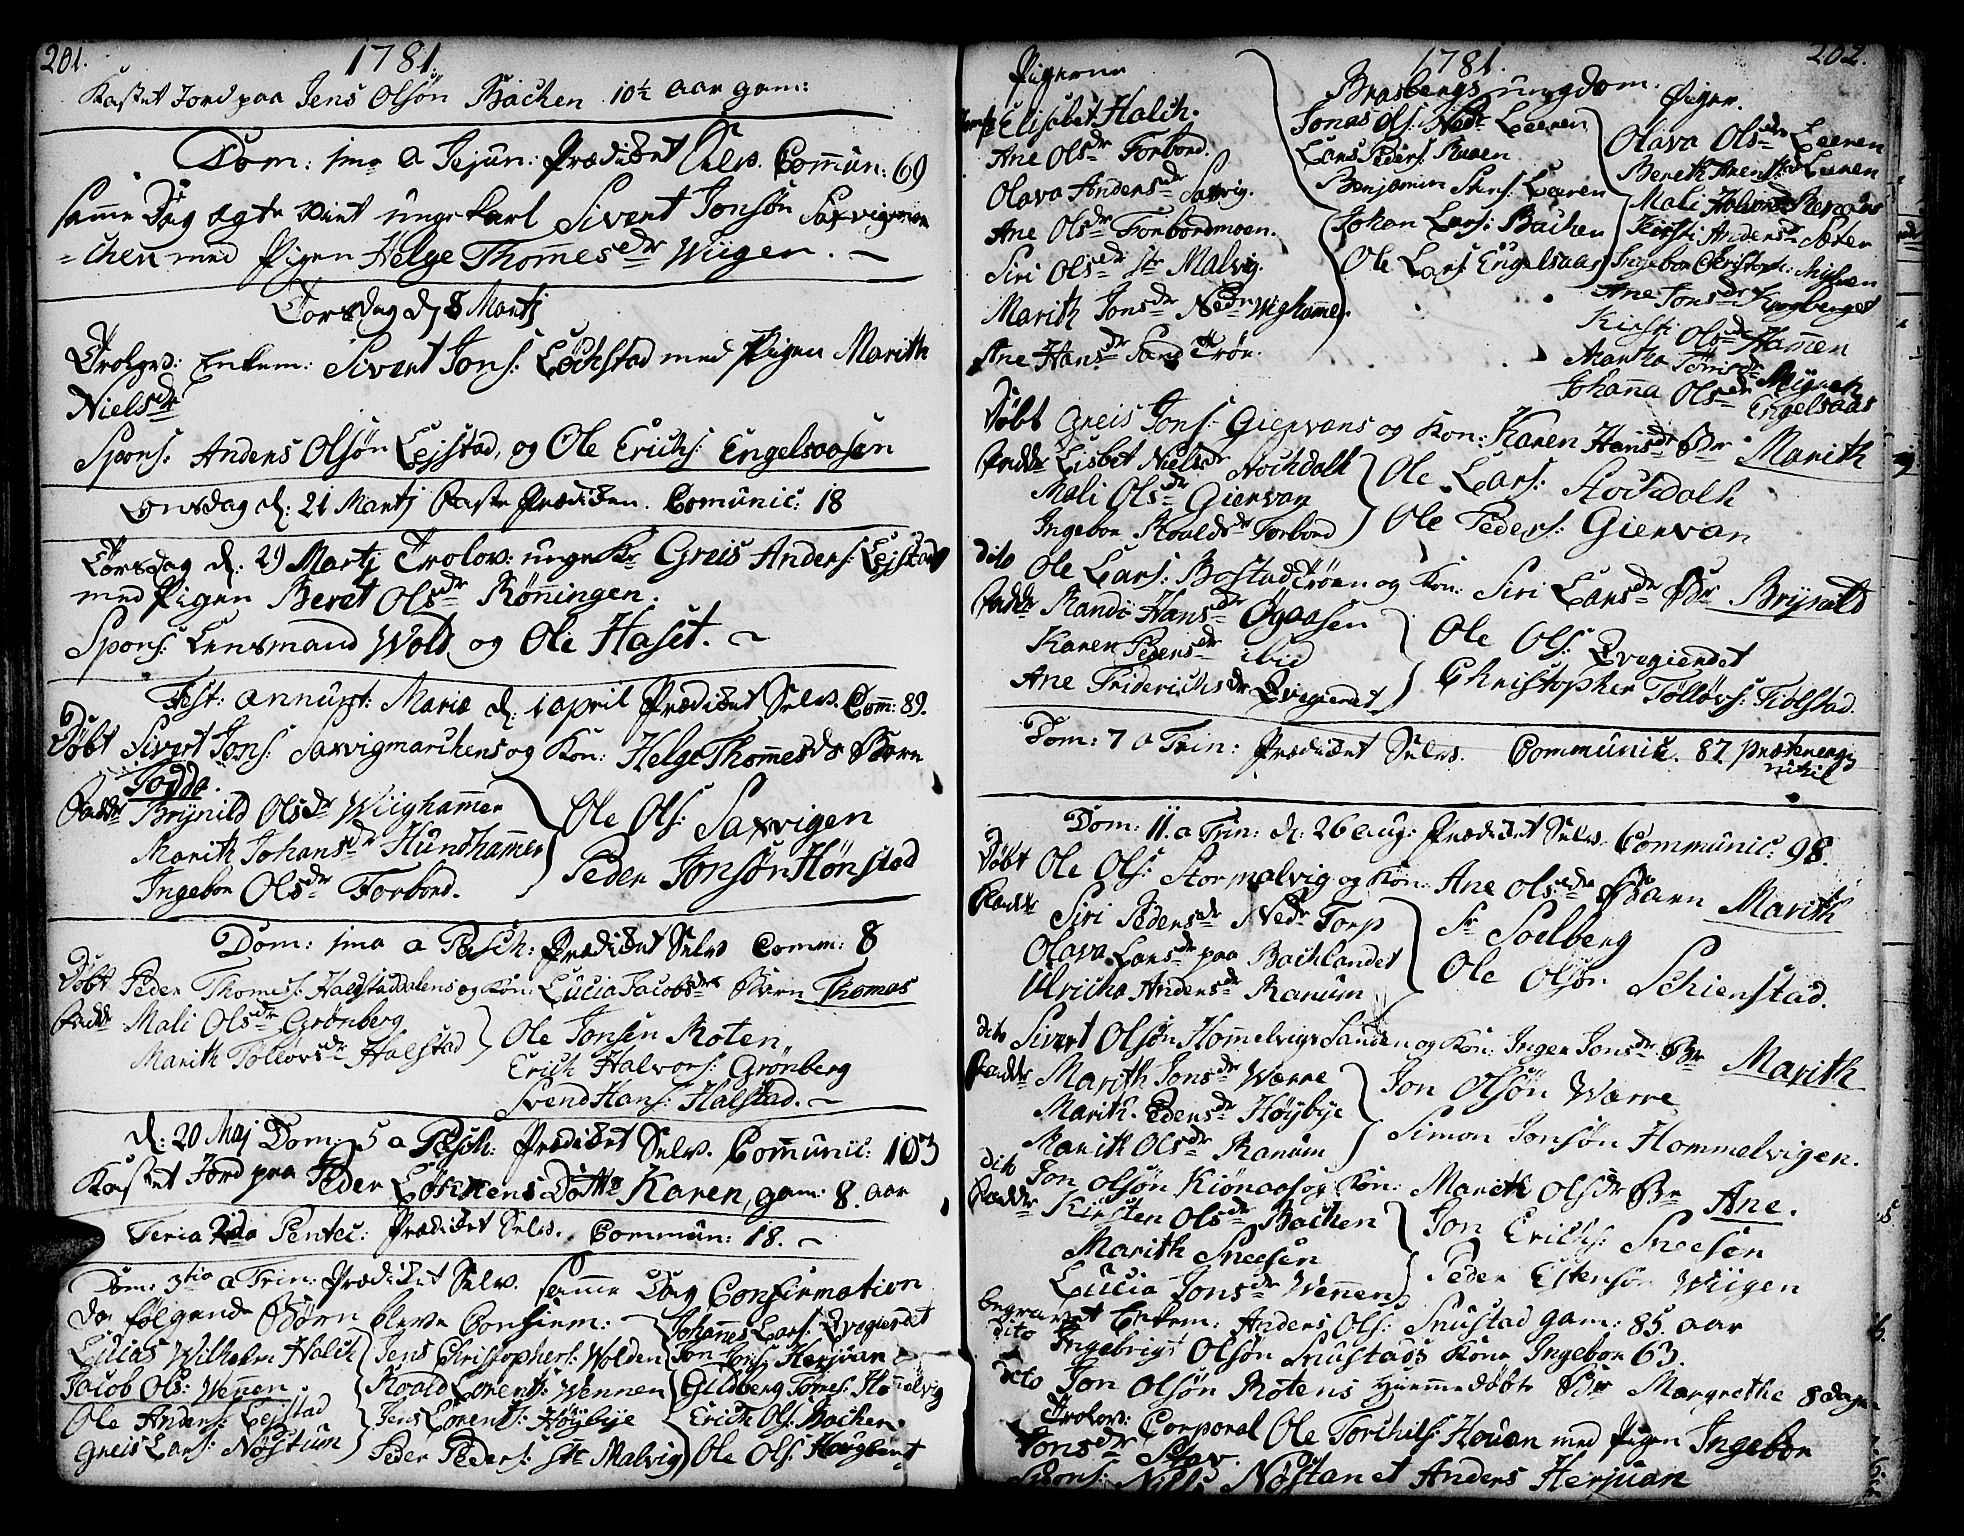 201.
1781.
Kastet Jord paa Jens Olsøn Bachen 10½ aar gam:
Dom: 1ma a Jejun: Prædiket Selv. Commun: 69
samme Dag ægte viet unge karl Sivert Jonsøn Saxvigmar
=chen med Pigen Helge Thommesdr Wiigen. ~
Torsdag d 8 Martj
Trolovd: Enkem: Sivert Jons: Lochstad med Pigen Marith
Nielsdr
Spons: Anders Olsøn Lejstad, og Ole Erichs: Engelsaasen
Onsdag d: 21 Martj Faste Prædiken. Comunic: 18
Torsdag d: 29 Martj Trolov: unge Kr Greis Anders: Lejstad
med Pigen Beret Olsdr Rønningen.
Spons: Lensmand Wold og Ole Haset. ~
Fest: annunt: Mariæ d: 1 april Prædiket Selv. Comm: 89.
Døbt Sivert Jons: Saxvigmarchens og Kon: Helge Thommesdr Barn
Todda.
Fadr Brynild Olsdr Wiighammer
Marith Johansdr Hundhammer
Ingebor Olsdr Forbord.
Ole Ols: Saxvigen
Peder Jonsøn Hønstad
Dom: 1ma a Pasch: Prædiket Selv Comm: 8
Døbt Peder Thomess: Halstaddalens og Kon: Lucia Jacobsdr Barn Thomas
Fadr Mali Olsdr Grønberg
Marith Tolløvsdr Halstad
Ole Jonsen Roten
Erich Halvors: Grønberg
Svend Hans: Halstad. ~
d: 20 Maj Dom: 5 a Pasch: Prædiket Selv. Communic: 103
Kastet Jord paa Peder Lørnens Dotter Karen, gam: 8. aar
Feria 2da Pentec: Prædiket Selv. Commun: 18. ~
Dom: 3tio a Trin: Prædiket Selv. samme Dag Confirmation
da følgende Børn bleve Confirm:
Lucas Wilhelm Halck
Jacob Ols: Wennen
Ole Anders: Lejstad
Greis Lars: Nøstum
Jens Christophers: Wolden
Roald Lorents: Wennen
Jens Lorents: Høybye
Peder Peders: Str Malvig
Johannes Lars: Qvegierdet
Jon Jons: Herjuan
Guldberg Tomes: Hommelvig
Erich Ols: Bachen.
Ole Ols: Hougland
202.
1781.
Pigerne
Elisabet Halch.
Ane Olsdr Forbord.
Olava Andersdr Saxvig.
Ane Olsdr Forbordmoen.
Siri Olsdr Str Malvig.
Marith Jonsdr Nedr Wighammer
Ane Hansdr Sand Trøn.
Brasbergs ungdom.
Jonas Ols: Nedr Leeren
Lars Peders: Ruen
Benjamin Leeren
Johan Lars: Bachen
Ole Lars: Engelsaas
Piger.
Olava Olsdr Leeren
Bereth Leeren
Mali
Kirsti Andersdr Sæter
Ingebor Christoph:
Ane Jonsdr
Kirsti Olsdr Hammen
Martha Tomesdr Myren
Johanna Olsdr Engelsaas
Døbt Greis Jons: Giervans og Kon: Karen Hansdr Br Marith
Fadr Lisbet Nielsdr Stochdalh
Mali Olsdr Giervan
Ingebor Roaldsdr Forbord
Ole Lars: Stochdalh
Ole Peders: Giervan
dito Ole Lars: Bostadtrøen og Kon: Siri Larsdr Br Brynild
Fadr Randi Hansdr Øgaasen
Karen Pedersdr ibid
Ane Friderichsdr Qvegierdet
Ole Ols: Qvegierdet
Christopher Tølløvs: Fidlstad.
Dom: 7 a Trin: Prædiket Selv. Communic. 87. præterea
nihil
Dom: 11. a Trin: d: 26 aug: Prædiket Selv. Communic: 98.
Døbt Ole Ols: Stormalvig og Kon: Ane Olsdr Barn Marith
Faddr Siri Pedersdr Nedr Torp
Olava Larsdr paa Bachlandet
Ulricha Andersdr Ranum
Sr Soelberg
Ole Olsøn Schienstad.
dito Sivert Olsøn Hommelvigs Sanden og Kon: Inger Jonsdr Br Marith
Faddr Marith Jonsdr Wærre
Marith. Pedersdr Høybye
Marith Olsdr Ranum
Jon Olsøn Wærre
Simon Jonsøn Hommelvigen.
dito Jon Olsøn Kiønaas og Kon: Marith Olsdr Br Ane.
Faddr Kirsten Olsdr Bachen
Marith Sneesen
Lucia Jonsdr Wennen
Jon Erichs: Sneesen
Peder Estensøn Wiigen
begravet Enkem: Anders Ols: Snustad gam: 85. aar
dito Ingebrigt Olsøn Snustads Kone Ingebor 63.
dito Jon Olsøn Rotens hiemmedøbt Br Margrethe 8 dage
Trolov: Corporal Ole Torchils: Houan med Pigen Ingebor
Jonsdr Stav.
Spons: Nils Nøstan et Anders Herjuan